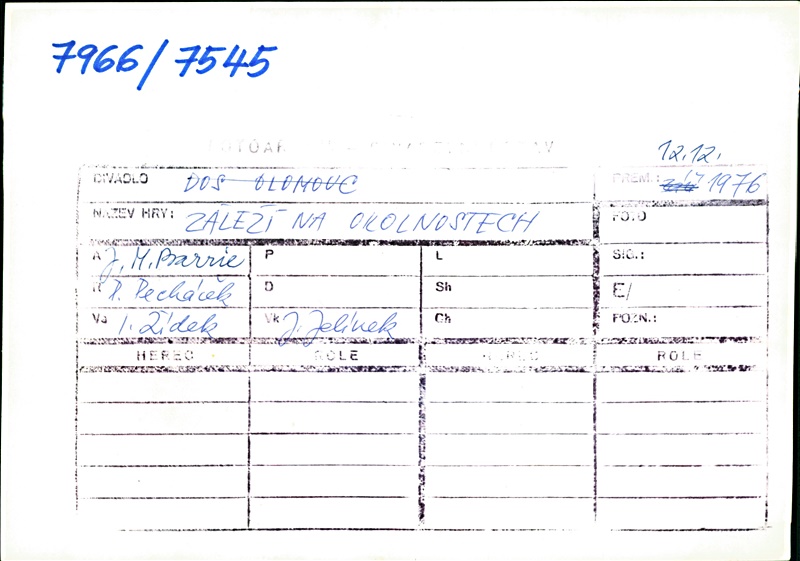 7966/7545
12.12.
DIVADLO DOS OLOMOUC PREM.: září 1976
NÁZEV HRY: ZÁLEŽÍ NA OKOLNOSTECH FOTO
A J. M. Barrie P L SIG.:
R P. Pecháček D Sh E/
Vs I. Žídek Vk J. Jelínek Ch POZN.:
HEREC ROLE HEREC ROLE